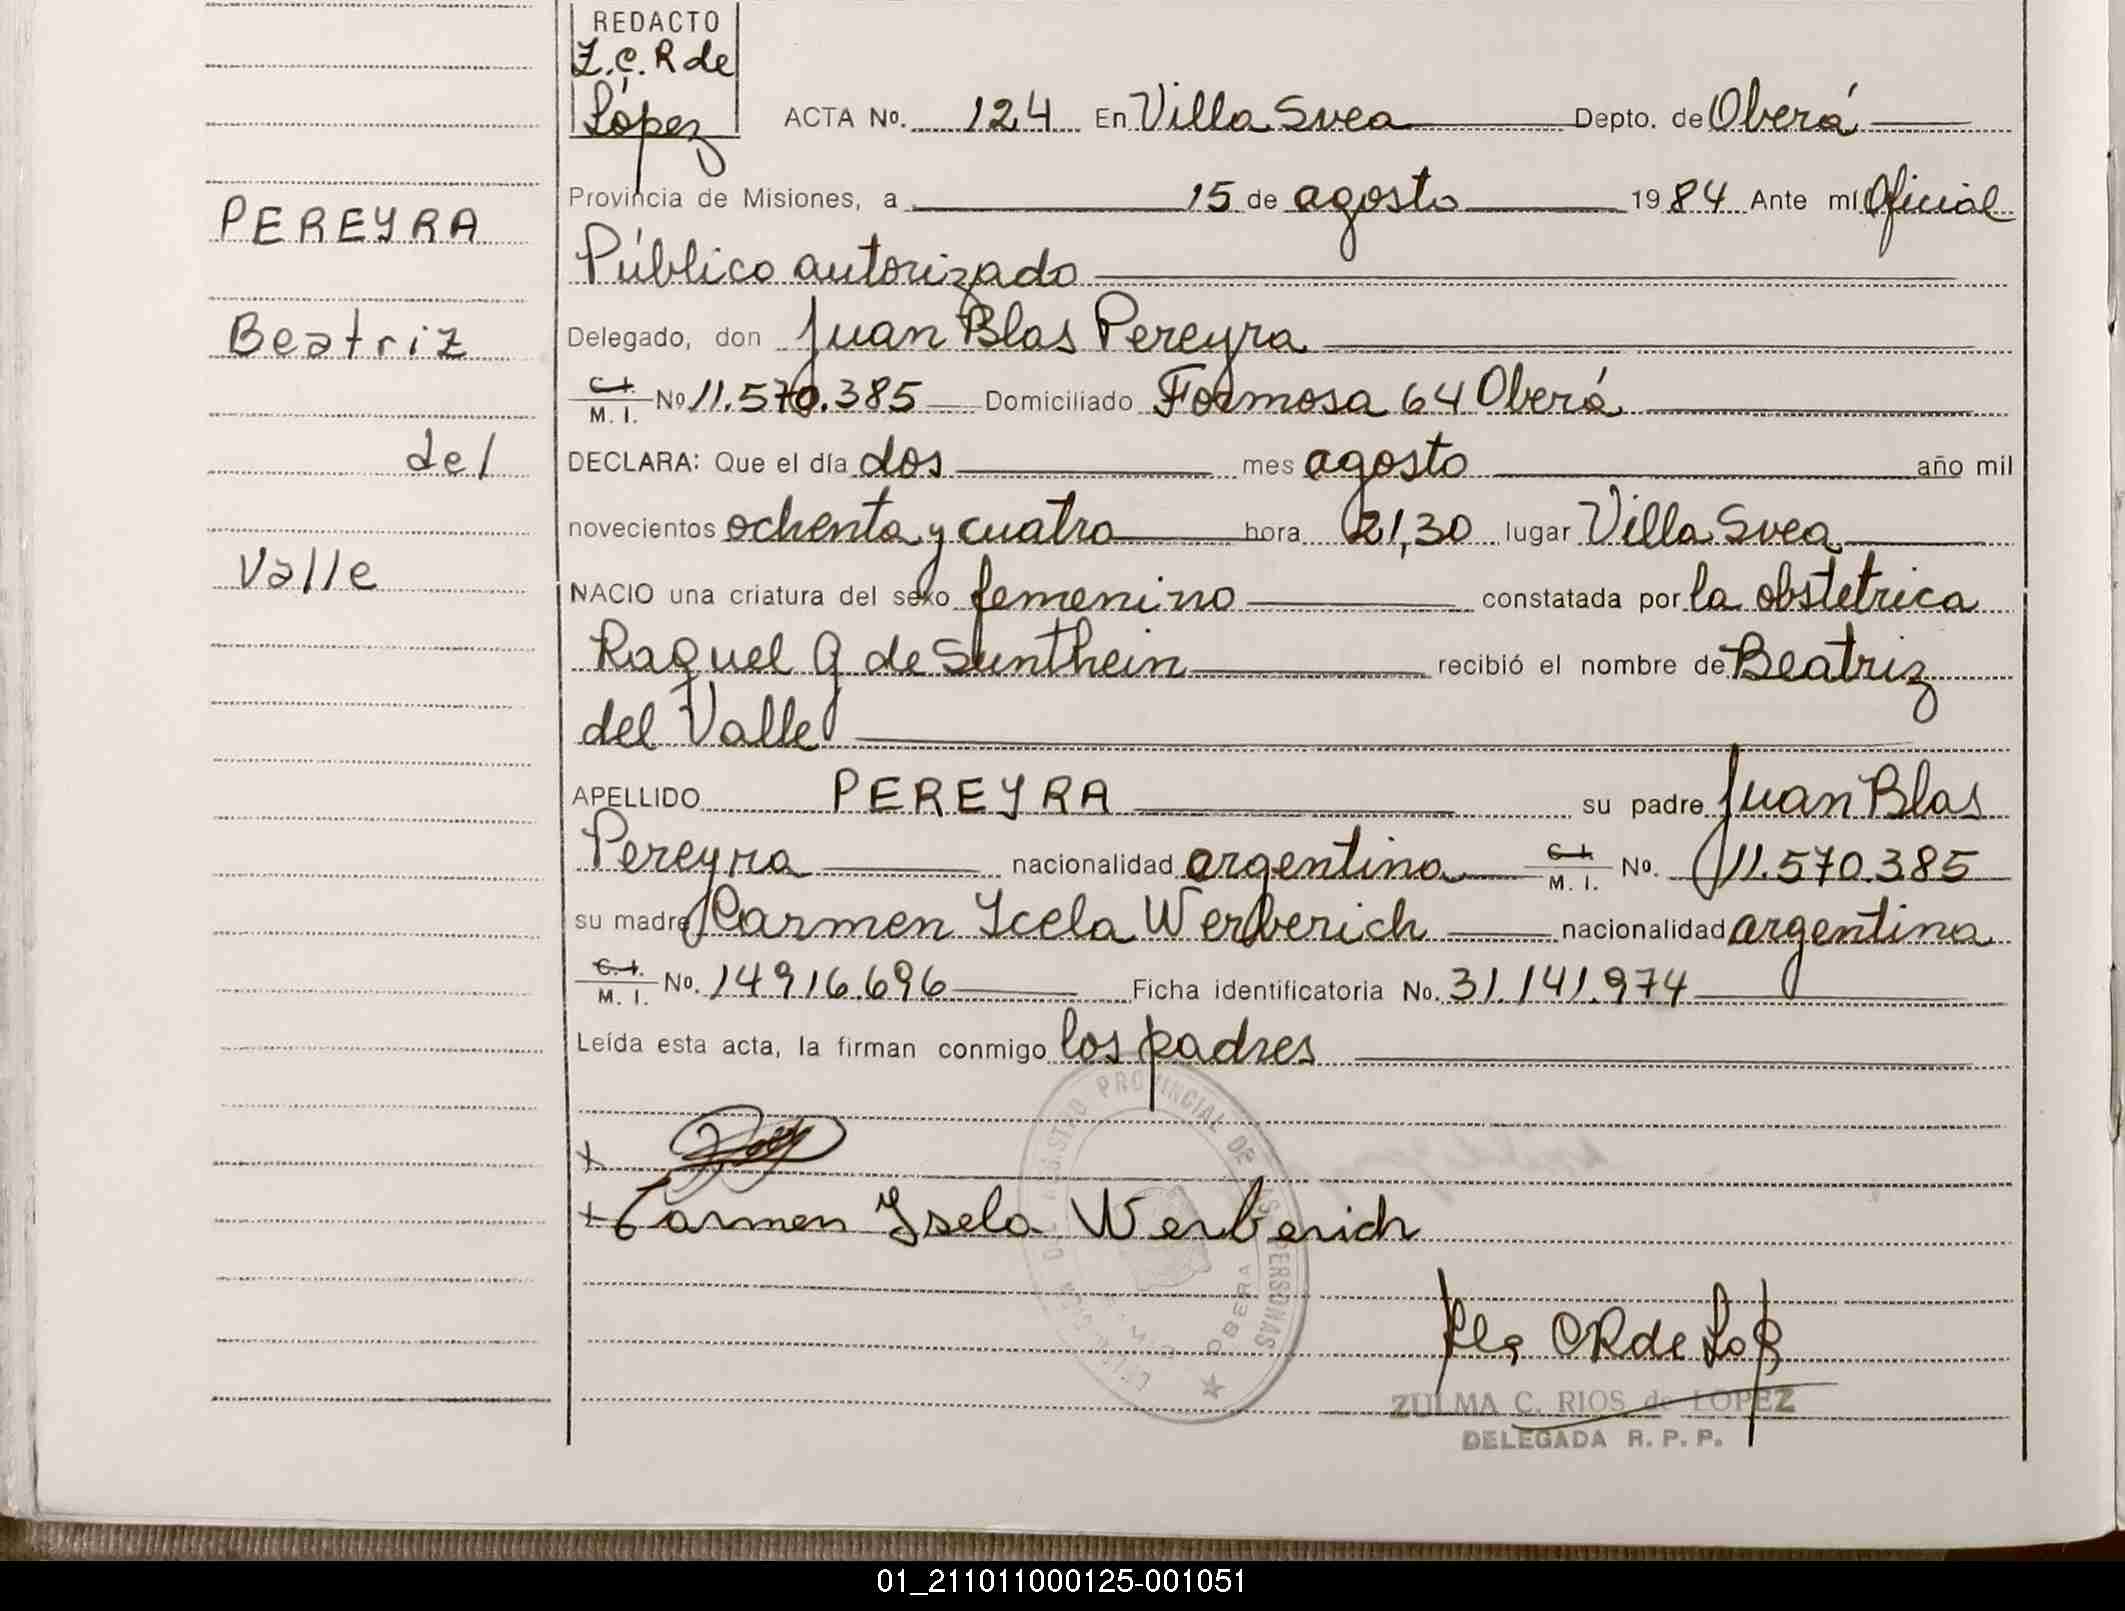 REDACTO
Z.C.R de
López
ACTA No. 124 En Villa Svea Depto. de Oberá
Provincia de Misiones, a 15 de agosto 1984 Ante mí Oficial
Público autorizado
Delegado, don Juan Blas Pereyra
C. I. M. I. No 11.570.385 Domiciliado Formosa 64 Oberá
DECLARA: Que el día dos mes agosto año mil
novecientos ochenta y cuatro hora 21,30 lugar Villa Svea
NACIO una criatura del sexo femenino constatada por la obstetrica
Raquel G de Sunthein recibió el nombre de Beatriz
del Valle
APELLIDO PEREYRA su padre Juan Blas
Pereyra nacionalidad argentina C. I. M. I. No. 11.570.385
su madre Carmen Icela Werberich nacionalidad argentina
C. I. M. I. No. 14916.696 Ficha identificatoria No. 31.141.974
Leída esta acta, la firman conmigo los padres
PEREYRA
Beatriz
del
Valle
Carmen Isela Werberich
PROVINCIAL DE LAS PERSONAS
OBERA
ZULMA C. RIOS de LOPEZ
DELEGADA R. P. P.
01_211011000125-001051